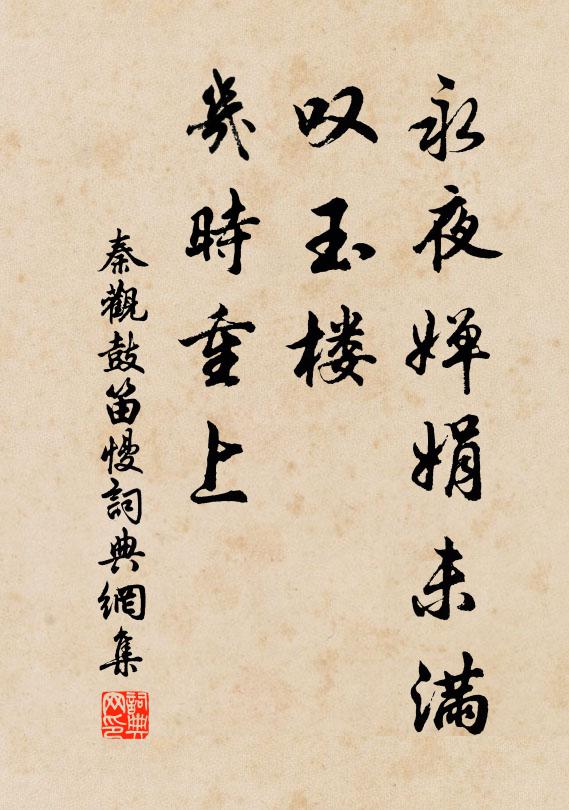 永夜婵娟未满
叹玉楼
幾時重上
秦觀鼓笛慢詞典網集
詞典网印